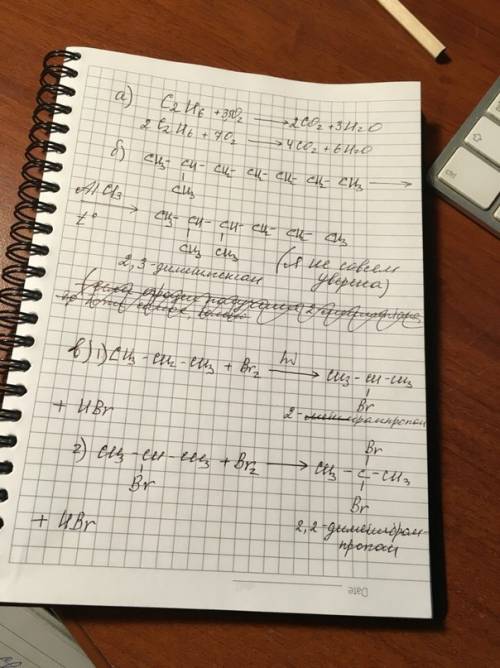 а) C2H6 + 3,5O2 ⟶ 2CO2 + 3H2O
2C2H6 + 7O2 ⟶ 4CO2 + 6H2O
б) CH3- CH- CH2- CH2- CH2- CH2- CH3 ⟶
CH3
AlCl3 ⟶ CH3- CH- CH- CH2- CH2- CH3
t° CH3 CH3
2,3-диметилгексан (Я не совсем уверена)
в) 1) CH3 - CH2 - CH3 + Br2 ⟶ hν CH3 - CH - CH3
Br
+ HBr 2-бромпропан
2) CH3 - CH - CH3 + Br2 ⟶ CH3 - C - CH3
Br Br Br
+ HBr 2,2-
пропан
Date